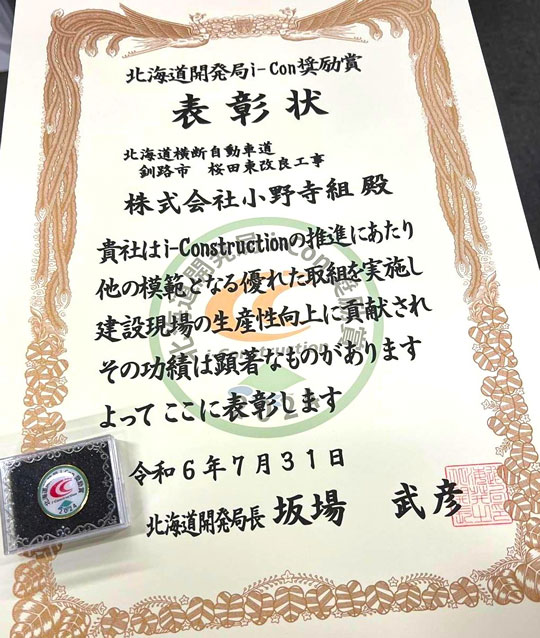 北海道開発局i-Con奨励賞
表彰状
北海道横断自動車道
釧路市 桜田東改良工事
株式会社小野寺組 殿
貴社はi-Constructionの推進にあたり
他の模範となる優れた取組を実施し
建設現場の生産性向上に貢献され
その功績は顕著なものがあります
よって ここに表彰します
令和6年7月31日
北海道開発局長 坂場 武彦
北海道開発局 i-Con奨励賞
i-Construction
2024
2024